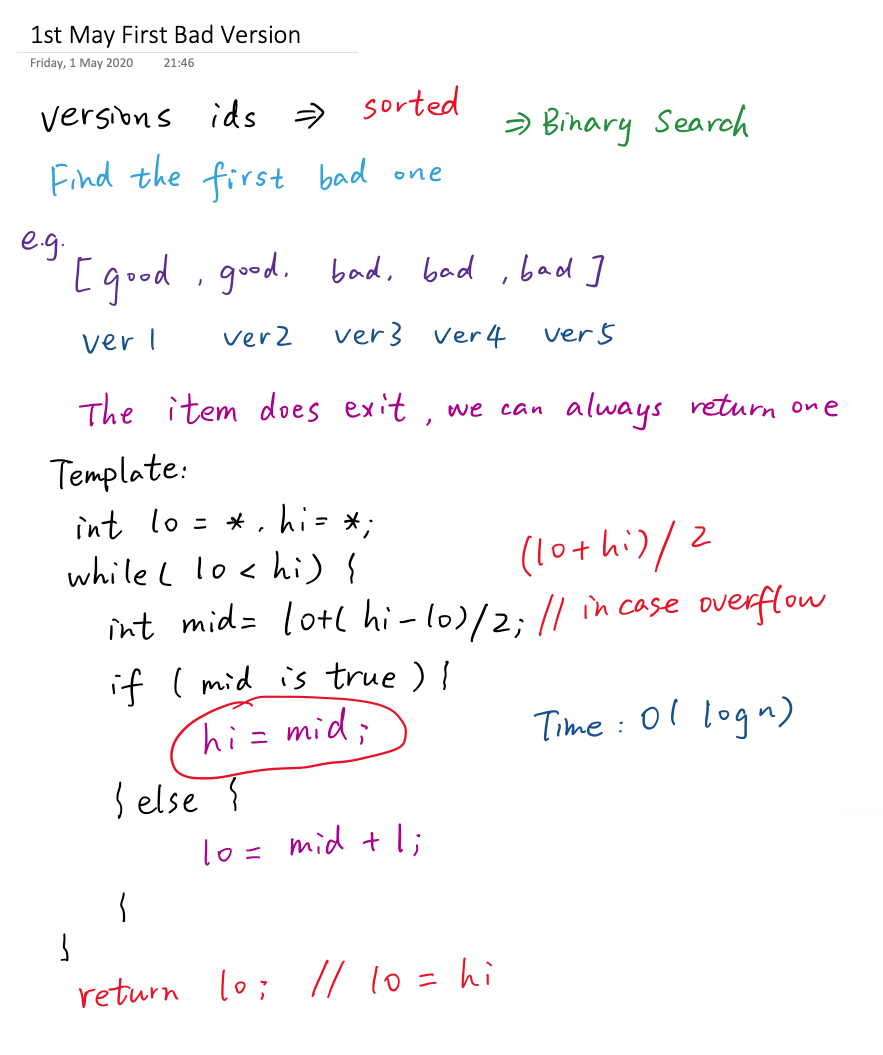 1st May First Bad Version
Friday, 1 May 2020 21:46
versions ids ⇒ sorted ⇒ Binary Search
Find the first bad one
e.g.
[ good , good. bad. bad , bad ]
ver 1 ver2 ver3 ver4 ver5
The item does exit , we can always return one
Template:
int lo = * , hi = *;
while ( lo < hi) {
(lo + hi) / 2
int mid = lo+( hi - lo)/2; // in case overflow
if ( mid is true ) {
hi = mid;
Time : O( logn)
} else {
lo = mid + 1;
{
}
return lo; // lo = hi